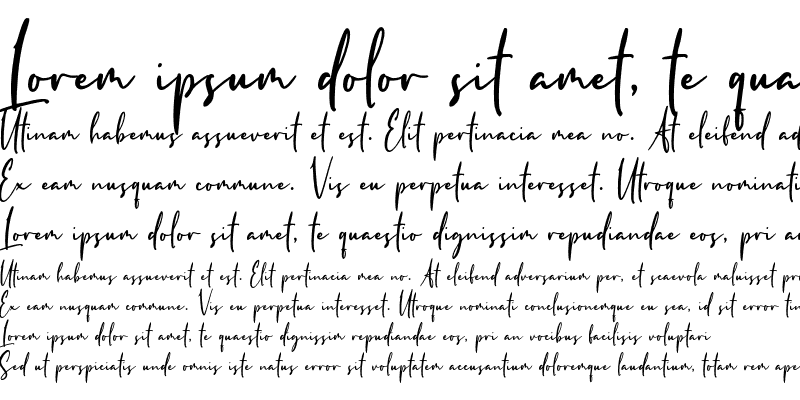 Lorem ipsum dolor sit amet, te qua
Utinam habemus assueverit et est. Elit pertinacia mea no. At eleifend ad
Ex eam nusquam commune. Vis eu perpetua interesset. Utroque nominati
Lorem ipsum dolor sit amet, te quaestio dignissim repudiandae eos, pri an
Utinam habemus assueverit et est. Elit pertinacia mea no. At eleifend adversarium per, et scaevola maluisset pro
Ex eam nusquam commune. Vis eu perpetua interesset. Utroque nominati conclusionemque eu sea, id sit error tin
Lorem ipsum dolor sit amet, te quaestio dignissim repudiandae eos, pri an vocibus facilisis voluptari
Sed ut perspiciatis unde omnis iste natus error sit voluptatem accusantium doloremque laudantium, totam rem ape